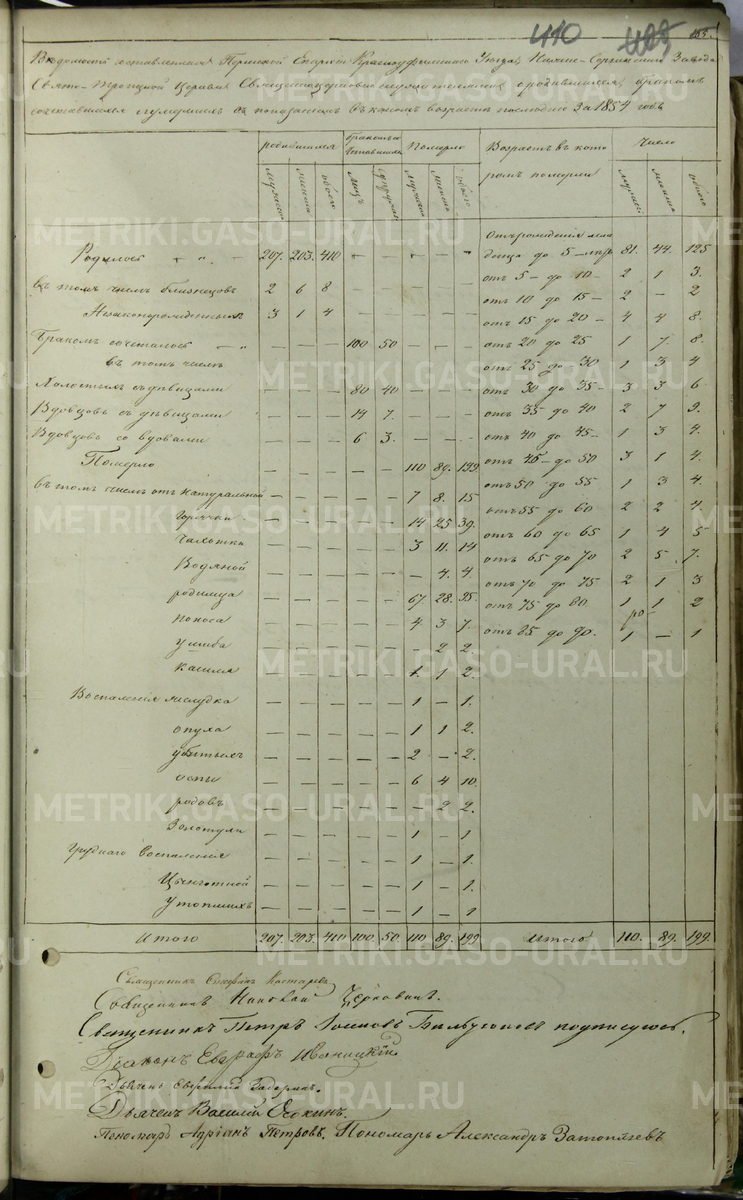 410 405 165.
Ведомость составленная Пермской Епархіи Красноуфимскаго Уезда, Нижне-Сергинскаго Завода
Свято-Троицкой Церкви Священноцерковно служителями, о родившихся, бракомъ
сочетавшихся и умершихъ съ показаніемъ въ какомъ возрастѣ последніе За 1854 годъ
родившихся бракомъ сочетавшихся Померло Возрастъ въ кото Число
мужеска женска обоего лицъ супружествъ мужеска женска обоего ромъ померли мужеска женска обоего
Родилось — " — 207. 203. 410 — — — — — отъ рожденія мла
денца до 5-ти 81. 44. 125
въ томъ числѣ близнецовъ 2 6 8 отъ 5 — до 10 — 2 1 3.
Незаконорожденныхъ 3 1 4 отъ 10 до 15 — 2 — 2
отъ 15 до 20 — 4 4 8.
Бракомъ сочеталось — " — 100 50 отъ 20 до 25 1 7. 8.
въ томъ числѣ отъ 25 до 30 1 3 4
Холостыхъ съ дѣвицами — — — 80 40 — — — отъ 30 до 35 — 3 3 6
Вдовцовъ съ дѣвицами — — — 14 7. — — — отъ 35 до 40 2 7 9.
Вдовцовъ со вдовами — — — 6 3. — — — отъ 40 до 45 — 1 3 4.
Померло — — — — — 110 89. 199 отъ 45 — до 50 3 1 4.
въ томъ числѣ отъ натуральной — — — — — 7 8. 15 отъ 50 до 55 1 3 4.
горячки — — — — — 14 25 39. отъ 55 до 60 2 2 4
чахотка — — — — — 3 11. 14 отъ 60 до 65 1 4 5
Водяной — — — — — — 4. 4. отъ 65 до 70 2 5. 7.
родимца — — — — — 67. 28. 95. отъ 70 до 75 2 1 3
поноса — — — — — 4 3 7. отъ 75 до 80 1 1 2
ушиба — — — — — — 2 2. отъ 85 до 90. 1 — 1
кашля — — — — — 1 1 2.
Воспаленія желудка — — — — — 1 — 1.
опуха — — — — — 1 1 2.
убитыхъ — — — — — 2 — 2.
оспы — — — — — 6 4 10.
родовъ — — — — — — 2 2.
Золотуха — — — — — 1 — 1.
Груднаго воспаленія — — — — — 1 — 1.
Цынготной — — — — — 1 — 1.
Утопшихъ — — — — — 1 — 1
Итого 207. 203. 410 100. 50. 110 89. 199 Итого 110. 89. 199.
Священникъ Стефанъ
Священникъ Николай
Священникъ Петръ подписуюсь.
Діаконъ Евграфъ Иваницкій
Дьячекъ
Дьячекъ Василій Ѳокинъ.
Пономарь Адріанъ Петровъ. Пономарь Александръ Затопляевъ
METRIKI.GASO-URAL.RU